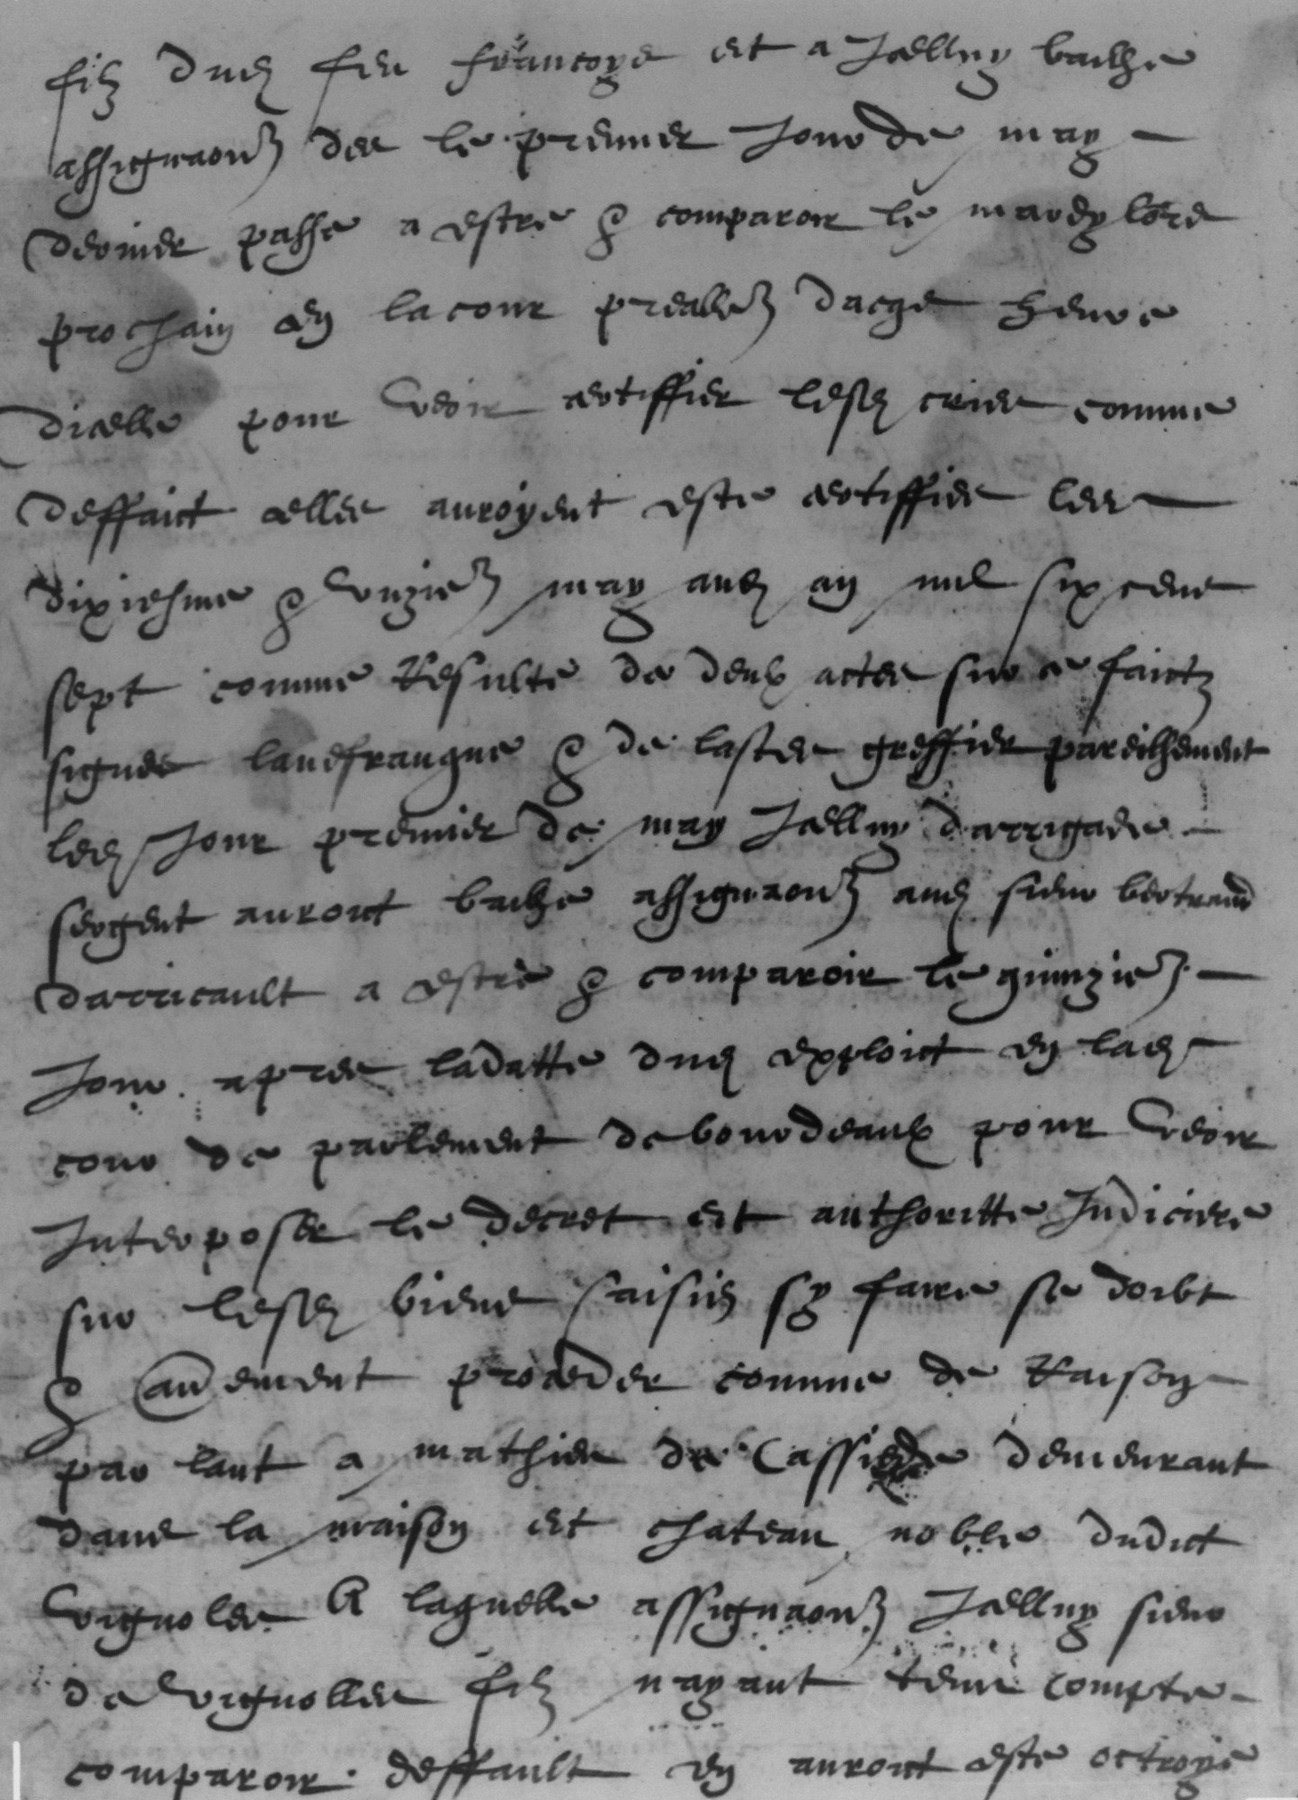 filz dud feu francoys et a Icelluy bailhe
assignaon des le premier Jour de may
dernier passe a estre & comparoir le mardy lors
prochain en la cour preallen dacqs heure
dicelle pour veoir certiffier lesd cries comme
deffaict celles auroyent este certiffies les
dixiesme & unzien may aud an mil six cens
sept comme Resulte de deux actes sur ce faictz
signes lanefranque & de lastes greffier pareilhement
led Jour premier de may Icelluy darrigade
sergent auroit bailhe assignaon aud sieur bertrand
darricault a estre & comparoir le quinzien
Jour apres la datte dud exploict en lad
cour de parlement de bourdeaux pour veoir
Interposer le decret et authoritte Judiciere
sur lesd biens saisis sy faire se doibt
& aument proceder comme de Raison
parlant a mathieu de Cassiede demeurant
dans la maison et chateau noble dudict
vignoles A laquelle assignaon Icelluy sieur
de vignolles filz nayant tenu compte
comparoir deffault en auroit este octroye